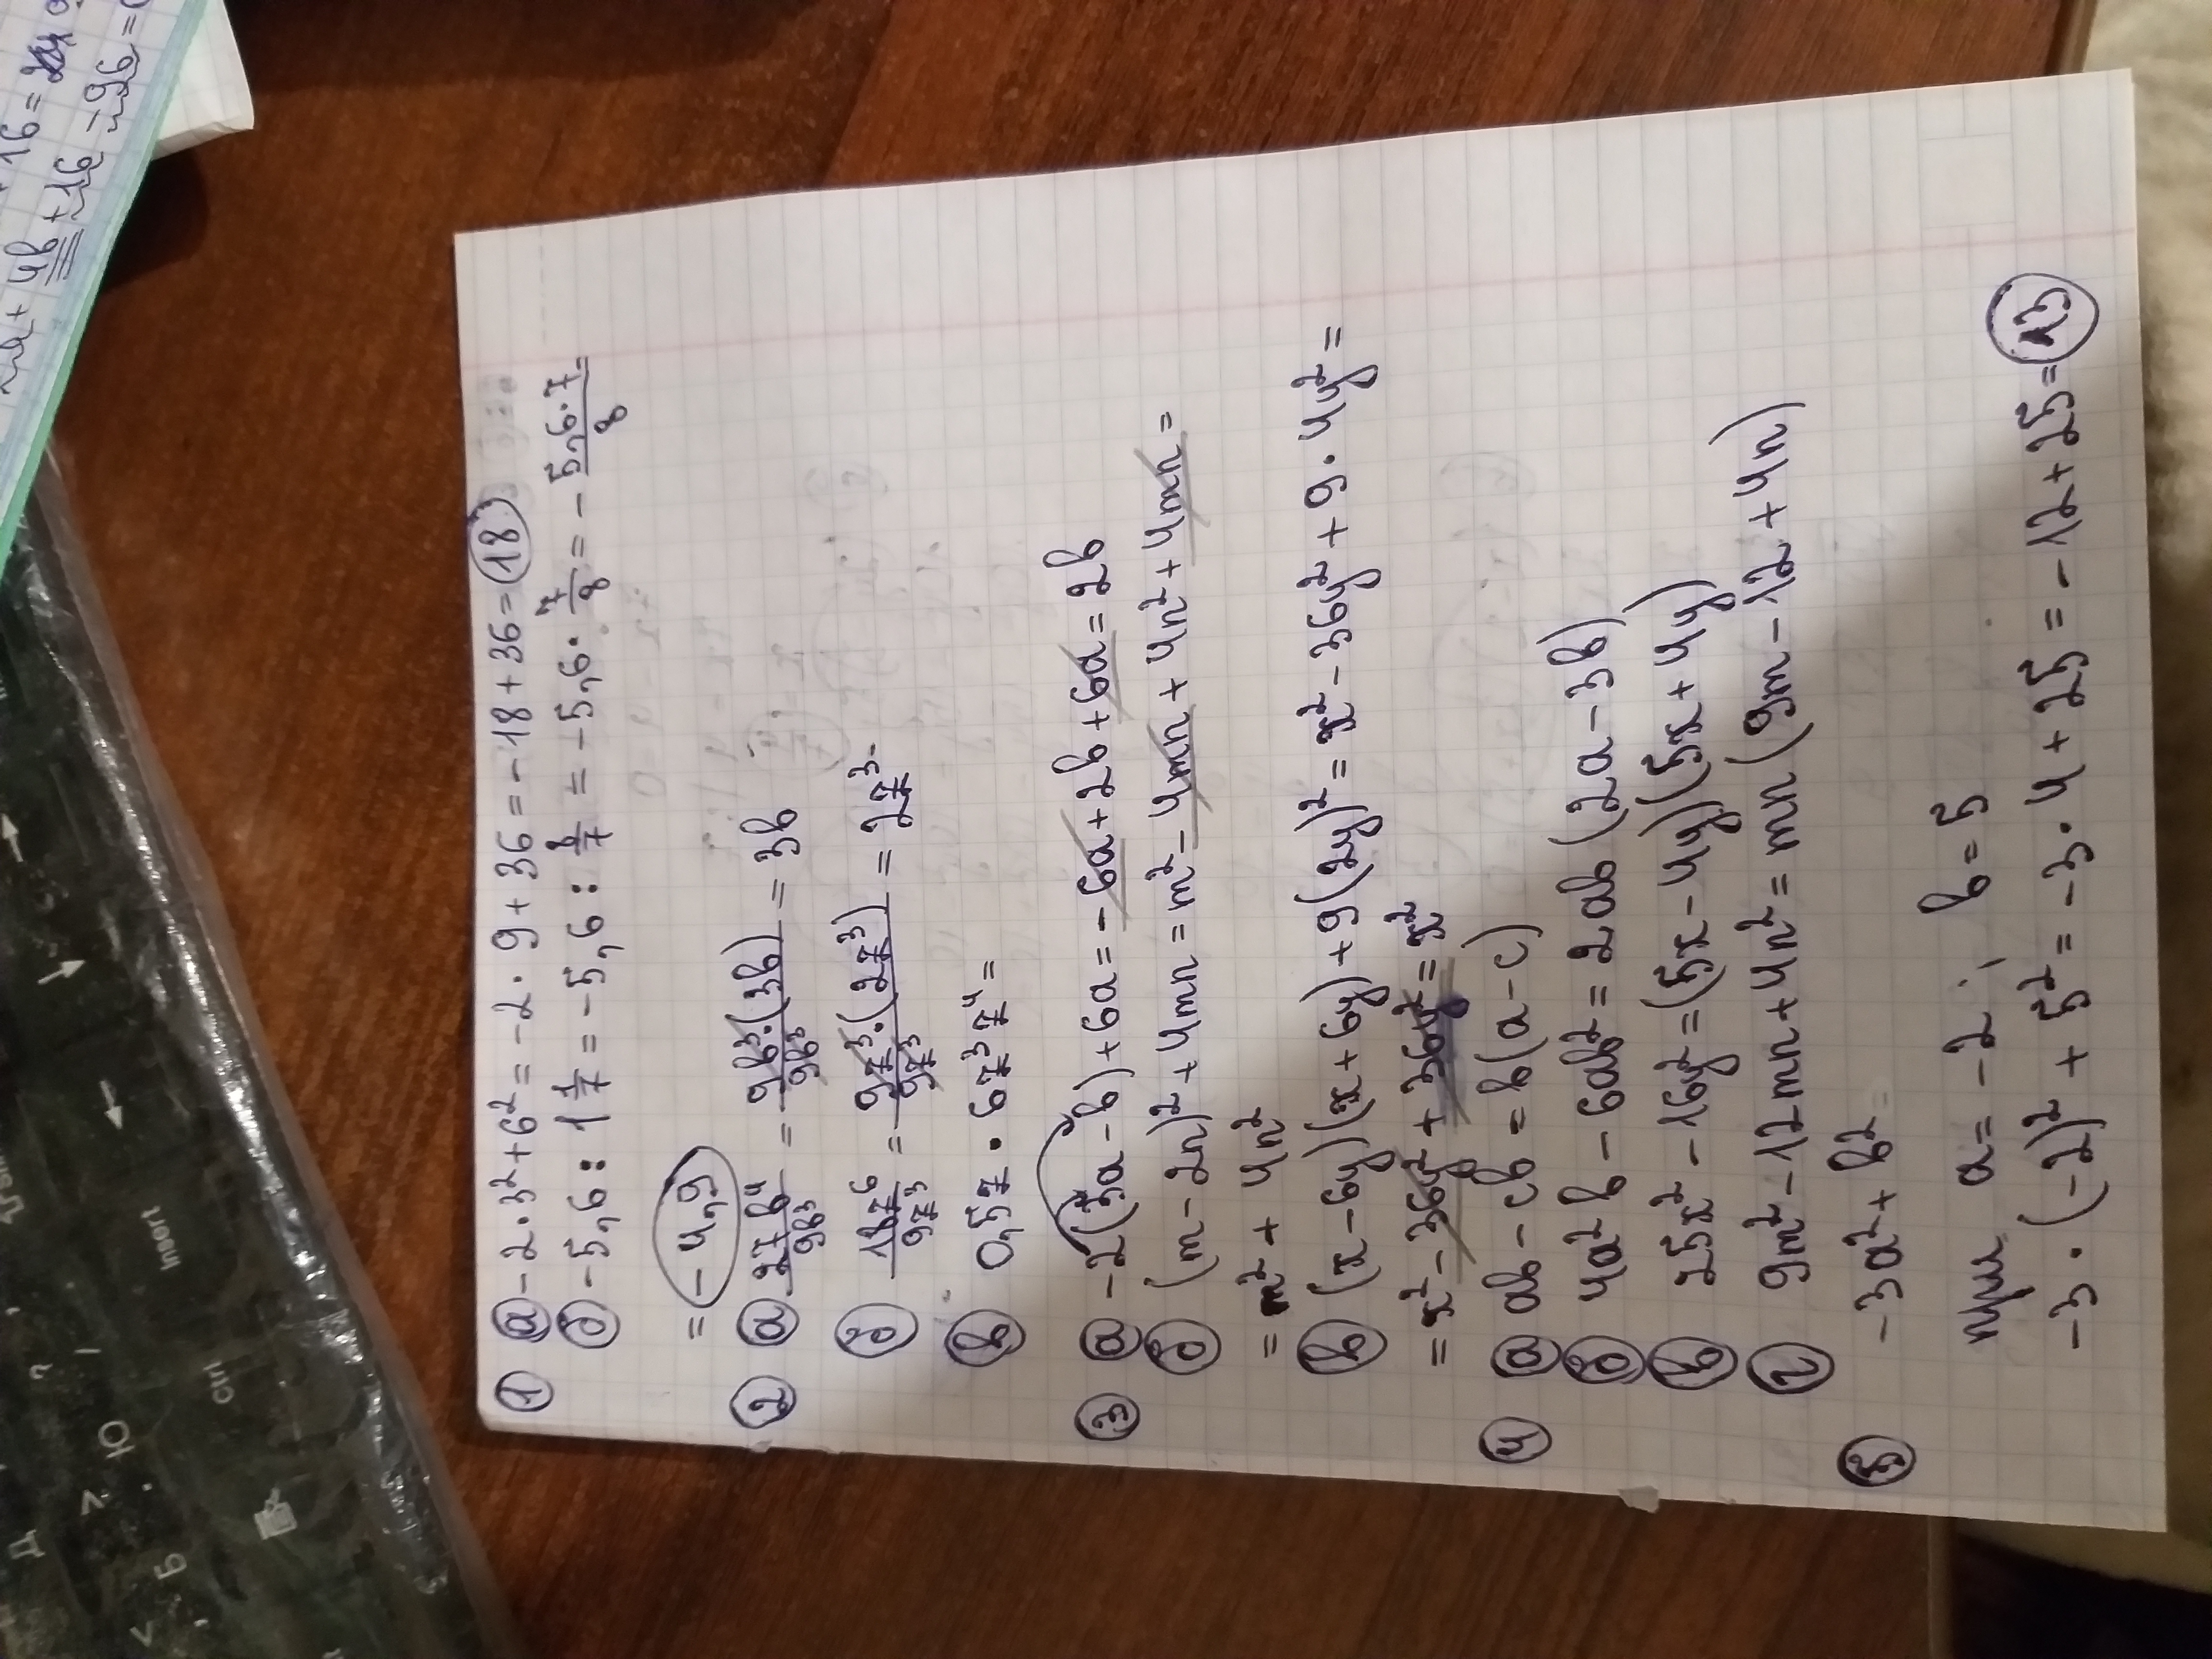 ① а) -2·3²+6² = -2·9+36 = -18+36 = 18
б) -5,6 : 1 1/7 = -5,6 : 8/7 = -5,6 · 7/8 = - 5,6·7/8 =
= -4,9
② а) 27b⁴/9b³ = 9b³·(3b)/9b³ = 3b
б) 18z⁶/9z³ = 9z³·(2z³)/9z³ = 2z³
в) 0,5z · 6z³z⁴ =
③ а) -2(3a-b)+6a = -6a+2b+6a = 2b
б) (m-2n)²+4mn = m²-4mn+4n²+4mn =
= m² + 4n²
в) (x-6y)(x+6y)+9(2y)² = x²-36y²+9·4y² =
= x²-36y²+36y² = x²
④ а) ab-cb = b(a-c)
б) 4a²b-6ab² = 2ab(2a-3b)
в) 25x²-16y² = (5x-4y)(5x+4y)
г) 9m²-12mn+4n² = mn(9m-12+4n)
⑤ -3a²+b² =
при a=-2; b=5
-3·(-2)²+5² = -3·4+25 = -12+25 = 13
+16=
+4b+16-96=
Insert
Ctrl
Д
Ю
Б